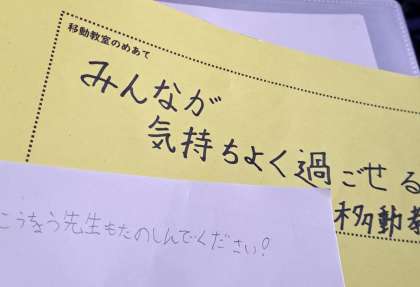 移動教室のめあて
みんなが
気持ちよく過ごせる
移動教
こうをう先生もたのしんでください!